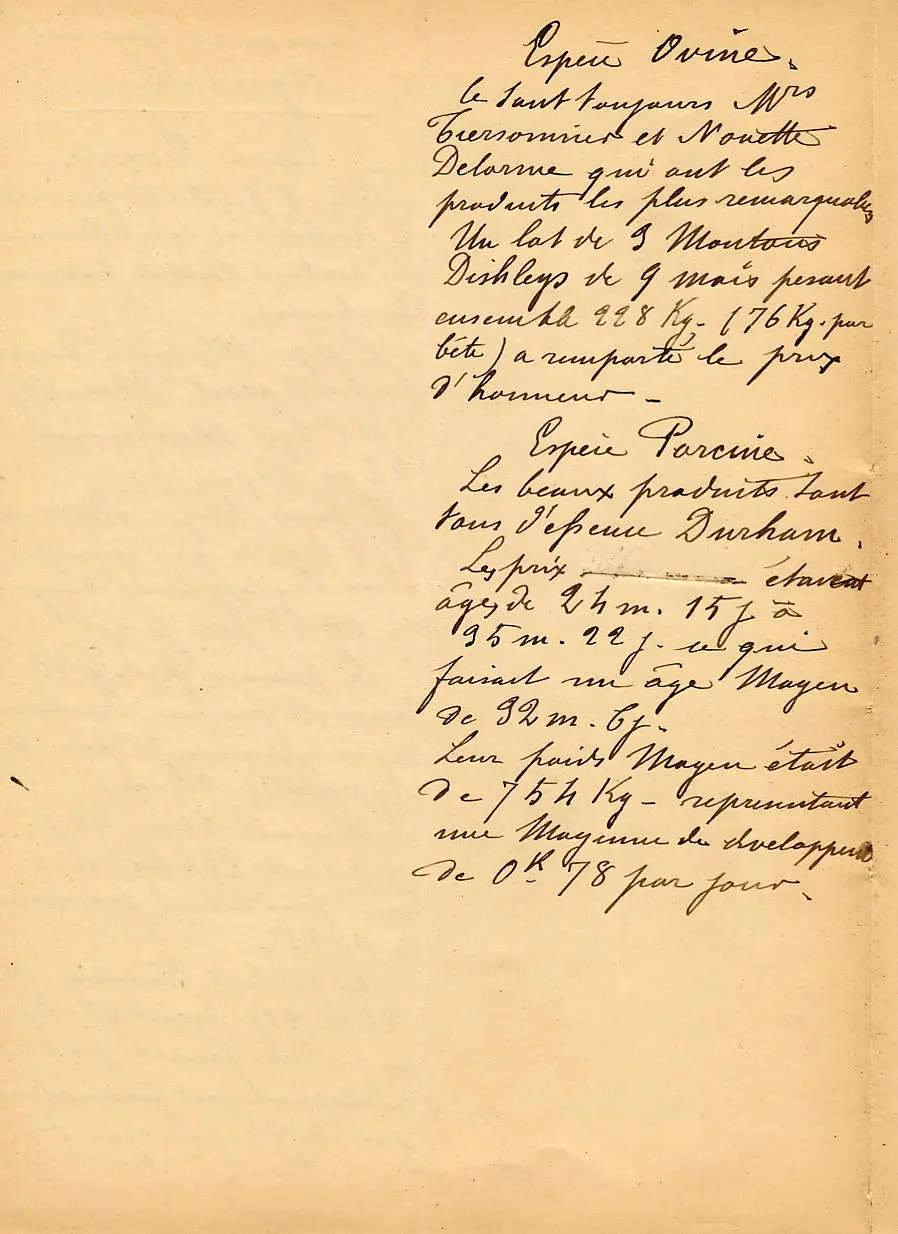 Espèce Ovine.
Ce sont toujours Mrs
Tiersonnier et Nouette
Delorme qui ont les
produits les plus remarquables
Un lot de 3 Moutons
Dishleys de 9 mois pesant
ensemble 228 Kg. (76 Kg. par
bête) a remporté le prix
d'honneur –
Espèce Porcine.
Les beaux produits sont
tous d'essence Durham.
Les prix étaient
âgés de 24 m. 15 j à
35 m. 22 j. ce qui
faisait un âge Moyen
de 32 m. 6 j.
Leur poids Moyen était
de 754 Kg – représentant
une Moyenne de dveloppem
de 0k. 78 par jour.